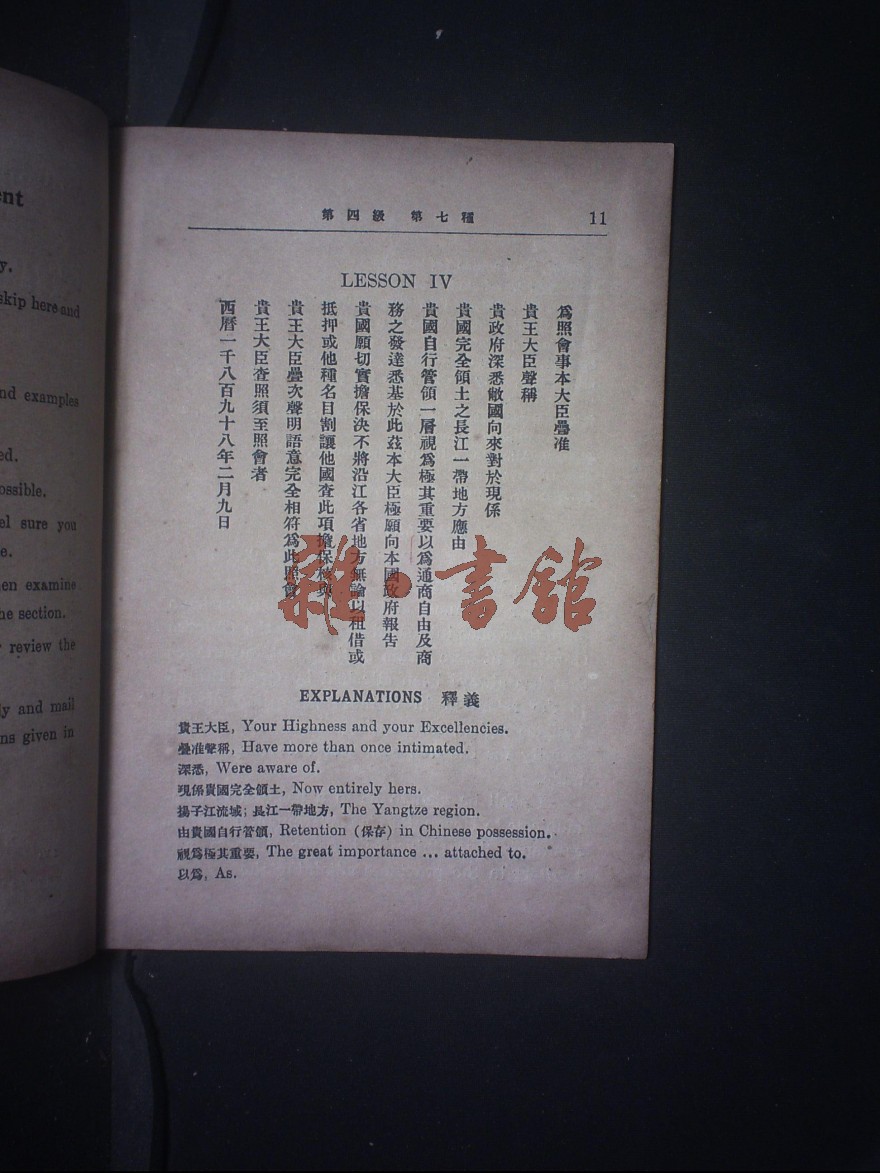 ent
y.
skip here and
nd examples
ed.
ossible.
el sure you
e.
en examine
he section.
review the
ly and mail
ns given in
第四級 第七種 11
LESSON IV
爲照會事本大臣疊准
貴王大臣聲稱
貴政府深悉敝國向來對於現係
貴國完全領土之長江一帶地方應由
貴國自行管領一層視爲極其重要以爲通商自由及商
務之發達悉基於此茲本大臣極願向本國政府報告
貴國願切實擔保決不將沿江各省地方無論以租借或
抵押或他種名目割讓他國查此項擔保核與
貴王大臣疊次聲明語意完全相符爲此照會
貴王大臣查照須至照會者
西曆一千八百九十八年二月九日
雜·書館
EXPLANATIONS 釋義
貴王大臣, Your Highness and your Excellencies.
疊准聲稱, Have more than once intimated.
深悉, Were aware of.
現係貴國完全領土, Now entirely hers.
揚子江流域; 長江一帶地方, The Yangtze region.
由貴國自行管領, Retention (保存) in Chinese possession.
視爲極其重要, The great importance ... attached to.
以爲, As.